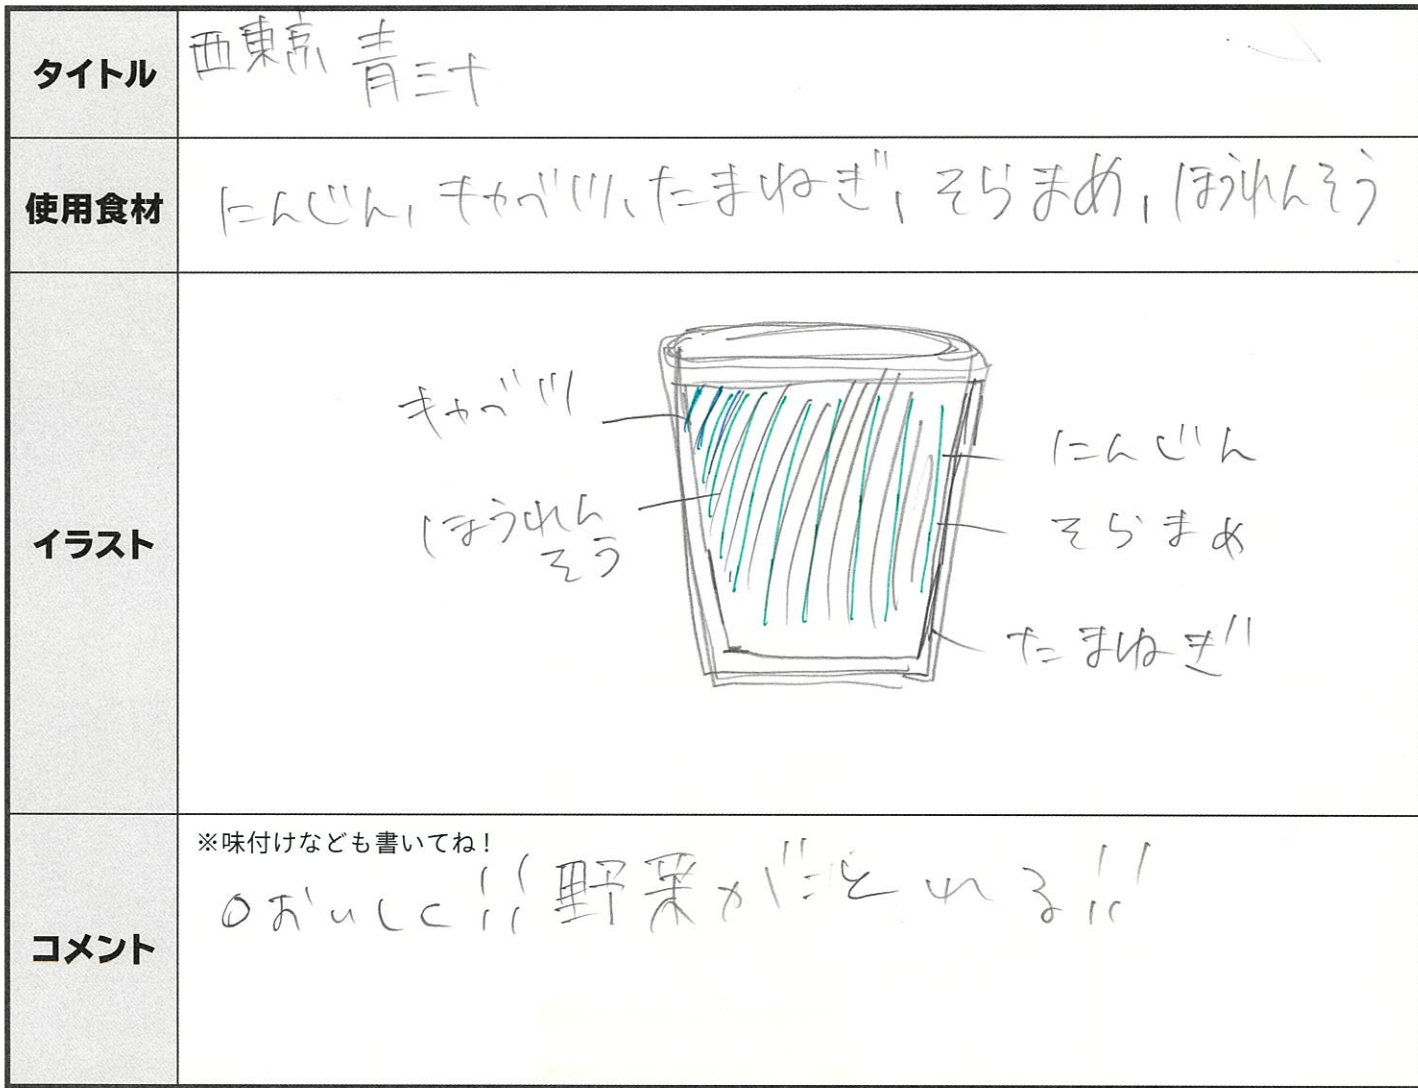 タイトル
西東京 青汁
使用食材
にんじん,キャベツ、たまねぎ,そらまめ,ほうれんそう
イラスト
キャベツ
ほうれん
そう
にんじん
そらまめ
たまねぎ
コメント
※味付けなども書いてね!
○おいしく!!野菜がとれる!!